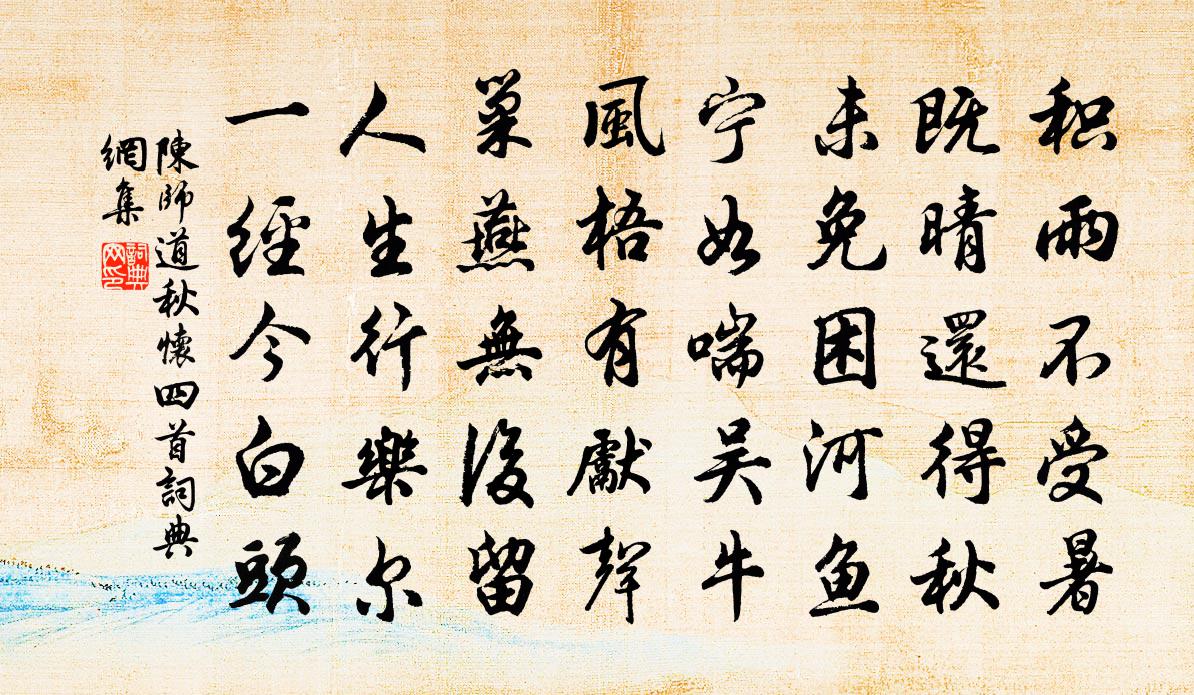 积雨不受暑
既晴還得秋
未免困河鱼
宁如喘吴牛
風梧有獻聲
巢燕無後留
人生行樂尔
一經今白頭
陳師道秋懷四首詞典
網集
詞典
网记